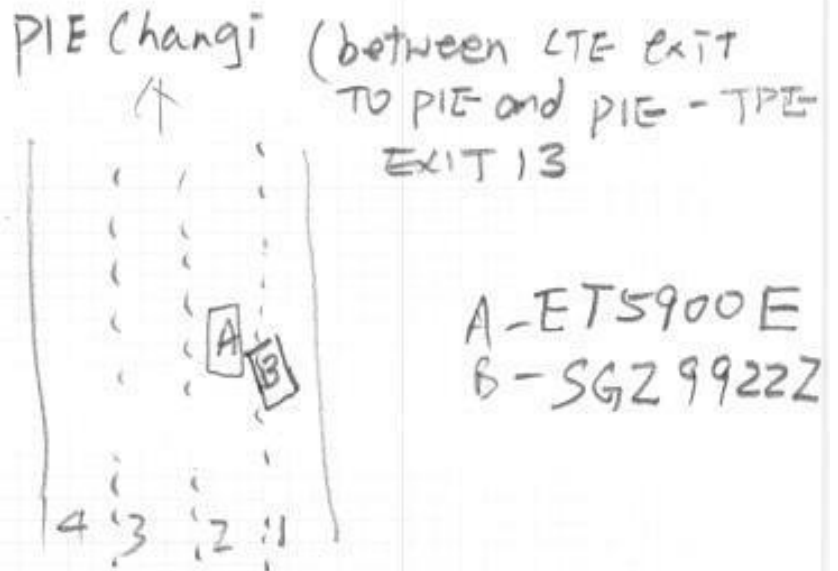 PIE Changi (between CTE exit
TO PIE and PIE - TPE
EXIT 13
A
B
A - ET5900E
B - SGZ9922Z
4 3 2 1